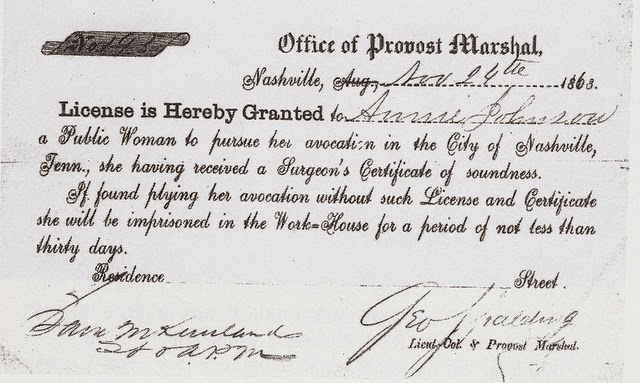 Office of Provost Marshal,
Nashville, Aug., Nov 24th 1863.
License is Hereby Granted to Annie Johnson
a Public Woman to pursue her avocation in the City of Nashville,
Tenn., she having received a Surgeon's Certificate of soundness.
If found plying her avocation without such License and Certificate
she will be imprisoned in the Work=House for a period of not less than
thirty days.
Residence Street.
Geo Spalding
Lieut-Col. & Provost Marshal.